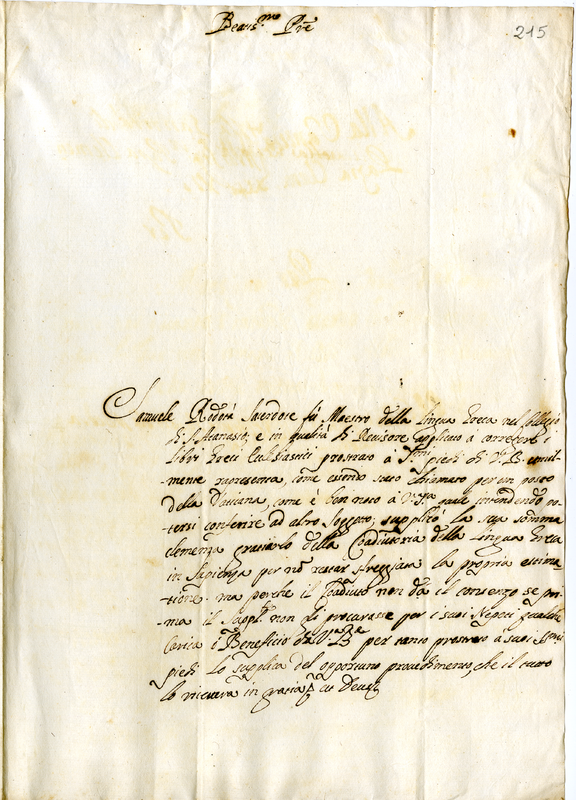 Beatis.mo Pre
215
Samuele Rodotà Sacerdote fù Maestro della lingua Greca nel Collegio
di S. Atanasio, e in qualità di Revisore applicato a correggere i
libri Greci Ecclesiastici prostrato a S.mi piedi di V. B. umil-
mente rapresenta, come essendo stato chiamato per un posto
della Vaticana, come è ben noto a V. intendendo po-
tersi conferire ad altro soggetto; supplicò la sua somma
clemenza gratiarlo della Coadiutoria della lingua Greca
in Sapienza per nō restar sfreggiata la propria estima-
tione. ma perche il Coadiuto non da il consenzo se pri-
ma il Suppl. non gli procurasse per i suoi Nepoti qualche
Carica ò Beneficio da V.a B.e per tanto prostrato a suoi S.mi
piedi lo supplica del opportuno provedimento, che il tutto
lo riceverà in gratia ut Deus